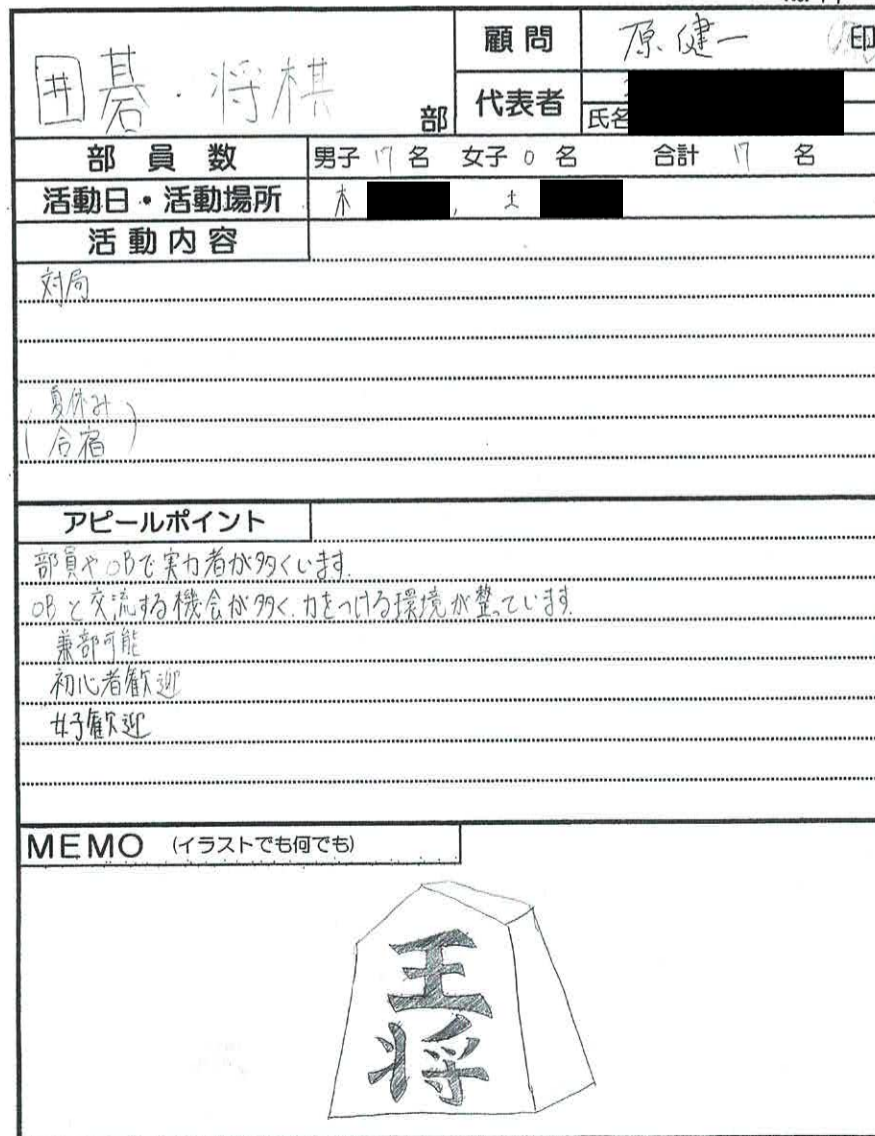 囲碁・将棋 部
顧問 原 健一 印
代表者 氏名
部員数 男子 17 名 女子 0 名 合計 17 名
活動日・活動場所 木 , 土
活動内容
対局
(夏休み
合宿)
アピールポイント
部員やOBで実力者が多くいます.
OBと交流する機会が多く、力をつける環境が整っています.
兼部可能
初心者歓迎
女子歓迎
MEMO (イラストでも何でも)
王将